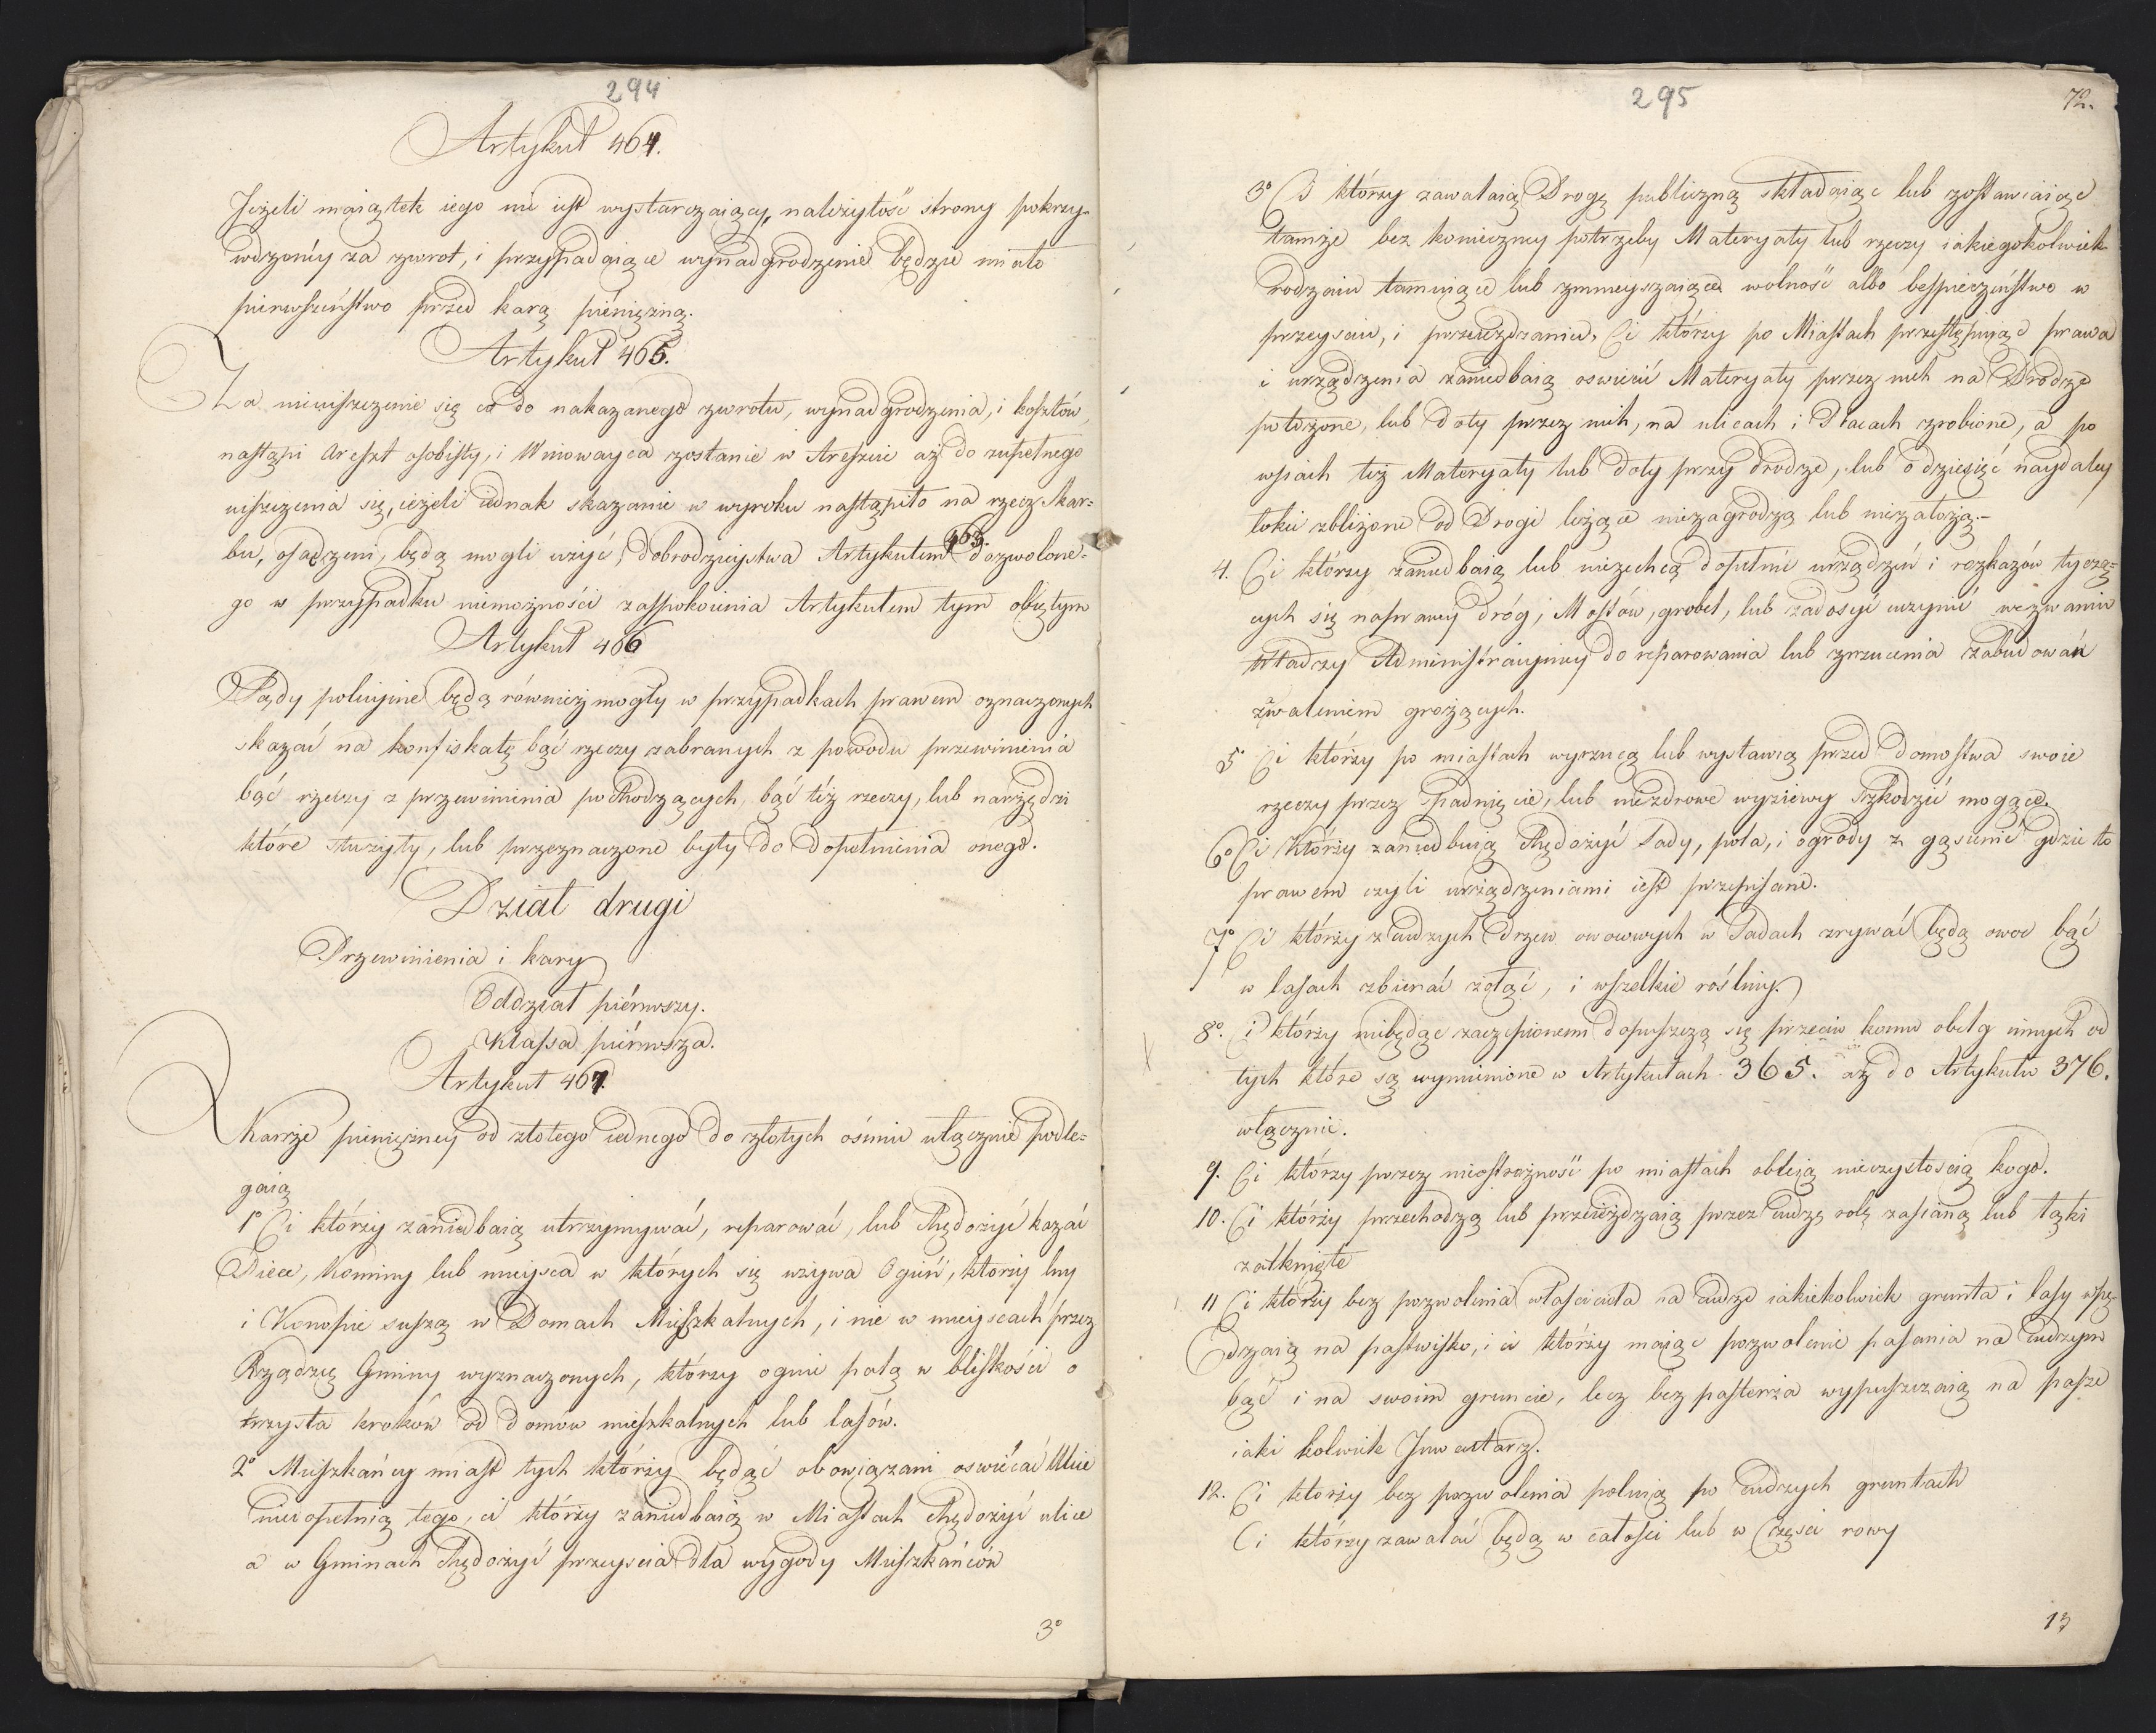 294
Artykuł 464.
Jeżeli maiątek iego nie iest wystarczaiący, należytość strony pokrzy-
wdzonéy za zwrot, i przypadaiące wynadgrodzenie będzie miało
pierwszeństwo przed karą pieniężną.
Artykuł 465.
Za nieuiszczenie się co do nakazanego zwrotu, wynadgrodzenia, i kosztów,
nastąpi Areszt osobisty, i Winowayca zostanie w Areszcie aż do zupełnego
uiszczenia się, ieżeli iednak skazanie w wyroku nastąpiło na rzecz Skar=
bu, osądzeni, będą mogli użyć, dobrodzieystwa Artykułem 463. dozwolone-
go w przypadku niemożności zaspokoienia Artykułem tym obiętym
Artykuł 466
Sądy policyine będą również mogły w przypadkach prawem oznaczonych
skazać na konfiskatę bąć rzeczy zabranych z powodu przewinienia
bąć rzeczy z przewinienia pochodzących, bąć téż rzeczy, lub narzędzi
które służyły, lub przeznaczone były do dopełnienia onego.
Dział drugi
Przewinienia i kary
Oddział piérwszy.
Klassa piérwsza.
Artykuł 467.
Karze pieniężney od złotego iednego do złotych ośmiu włącznie podle=
gaią
1° Ci którzy zaniedbaią utrzymywać, reparować, lub chędożyć kazać
Piece, Kominy lub mieysca w których się używa Ogień, którzy lny
i Konopie suszą w Domach Mieszkalnych, i nie w mieyscach przez
Rządzcę Gminy wyznaczonych, którzy ognie palą w bliskości o
trzysta kroków od domów mieszkalnych lub lasów.
2° Mieszkańcy miast tych którzy będąć obowiązani oswiécać Ulice
niedopełnią tego, ci którzy zaniedbaią w Miastach chędożyć ulice
a w Gminach chędożyć przeyscia dla wygody Mieszkańców
3°
295
72.
3° Ci którzy zawalaią Drogę publiczną składaiąc lub zostawiaiąc
tamże bez konieczney potrzeby Materyały lub rzeczy iakiegokolwiek
rodzaiu tamuiące lub zmnieyszaiące wolność albo bespieczeństwo w
przeysciu, i przeieżdzaniu, Ci którzy po Miastach przestępuiąc prawa
i urządzenia zaniedbaią oswiecić Materyały przez nich na Drodze
położone, lub doły przez nich, na ulicach i Placach zrobione, a po
wsiach też Materyały lub doły przy drodze, lub o dziesięć naydaley
łokci zbliżone od Drogi leżące niezagrodzą lub niezałożą.-
4. Ci którzy zaniedbaią lub niezechcą dopełnić urządzeń i rozkazów tyczą=
cych się naprawy dróg, Mostów, grobel, lub zadosyć uczynić wezwaniu
władzy Administracyiney do reparowania lub zrzucenia zabudowań
zwaleniem grożących.
5° Ci którzy po miastach wyrzucą lub wystawią przed domostwa swoie
rzeczy przez spadnięcie, lub niezdrowe wyziewy szkodzić mogące.
6° Ci którzy zaniedbuią chędożyć Sady, pola, i ogrody z gąsienic gdzie to
prawem czyli urządzeniami iest przepisane.
7° Ci którzy z cudzych drzew owocowych w Sadach zrywać będą owoc bąć
w lasach zbierać żołąć, i wszelkie rośliny
8°. Ci którzy niebędąc zaczepionemi dopuszczą się przeciw komu obelg innych od
tych które są wymienione w Artykułach 365. aż do Artykułu 376.
włącznie.
9. Ci którzy przez nieostrożność po miastach obleią nieczystością kogo.
10. Ci którzy przechodzą lub przeieżdzaią przez cudzą rolę zasianą lub łąki
zatknięte
11 Ci którzy bez pozwolenia właściciela na cudze iakiekolwiek grunta i lasy wpę-
dzaią na pastwisko, i ci którzy maiąc pozwolenie pasania na cudzym
bąć i na swoim gruncie, lecz bez pasterza wypuszczaią na pasze
iaki kolwiek Inwentarz.
12. Ci którzy bez pozwolenia poluią po cudzych gruntach
Ci którzy zawalać będą w całości lub w części rowy
13